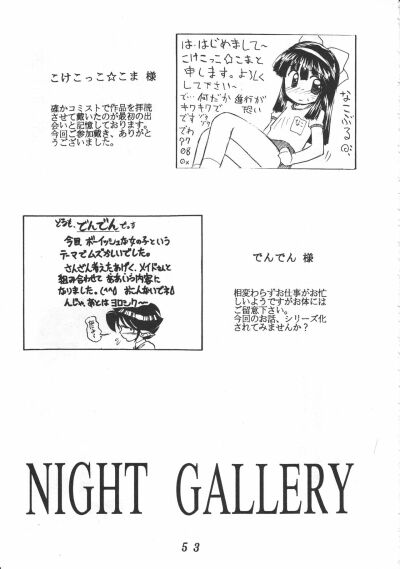 こけこっこ☆こま 様
確かコミストで作品を拝読
させて戴いたのが最初の出
会いと記憶しております。
今回ご参加戴き、ありがと
うございました。
は・はじめまして～
こけこっこ☆こまと
申します。よろしく
して下さい～
で…何だか進行が
キワキワで恐い
ですでわ??
なこぶる@
どうも、でんでんでっす
今日 ボーイッシュな女の子という
テーマでムズかしいでした。
さんざん考えたあげく、メイドさんと
組み合わせて ああいう内容に
なりました。(^^;) おこんないでネ♪
んじゃ あとは ヨロシク～
でんでん 様
相変わらずお仕事がお忙
しいようですがお体には
ご留意下さい。
今回のお話、シリーズ化
されてみませんか?
NIGHT GALLERY
53